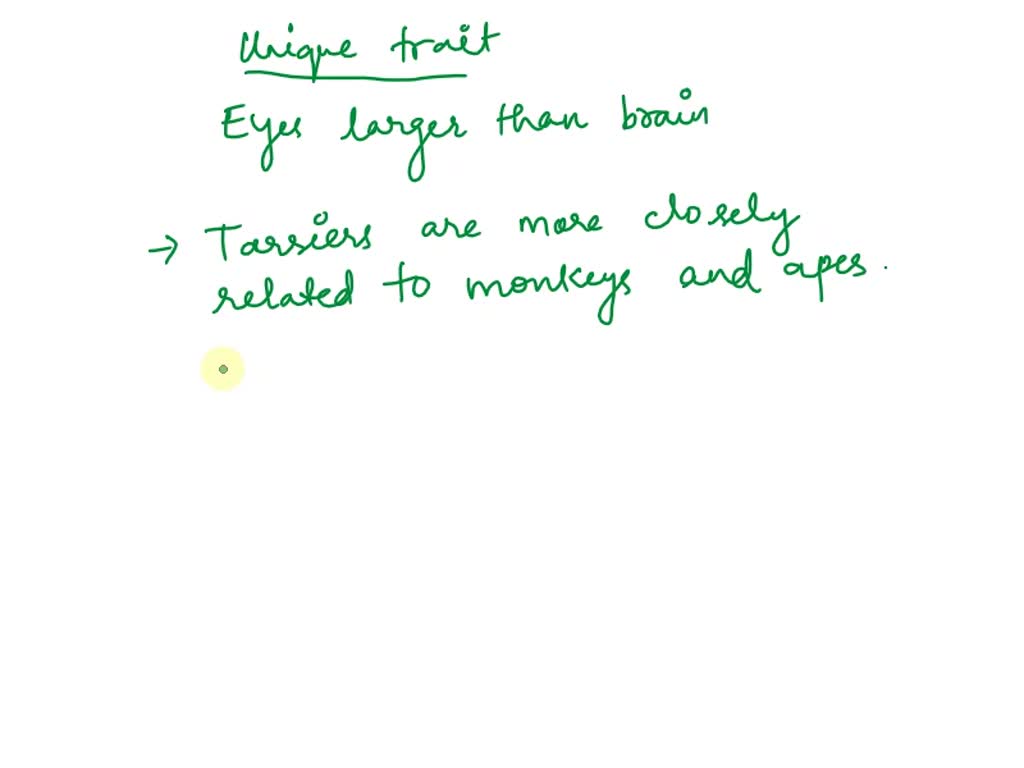 Unique trait
Eyes larger than brain
→ Tarsiers are more closely
related to monkeys and apes.